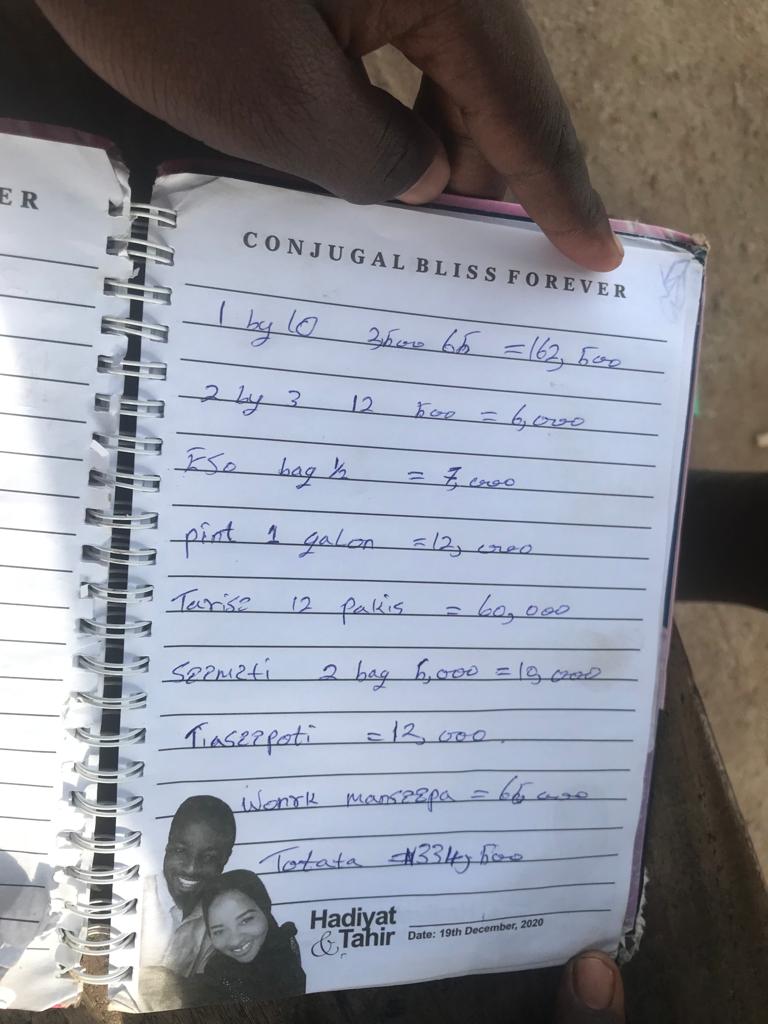 ER
CONJUGAL BLISS FOREVER
1 by 10 2,500 65 = 162,500
2 by 3 12 500 = 6,000
ESo bag ½ = 7,000
pint 1 galon = 12,000
Tarisz 12 pakis = 60,000
Seemeti 2 bag 5,000 = 10,000
Tiaseepoti = 12,000.
Wonrk manseepa = 65,000
Totata = ₦334,500
Hadiyat
& Tahir
Date: 19th December, 2020